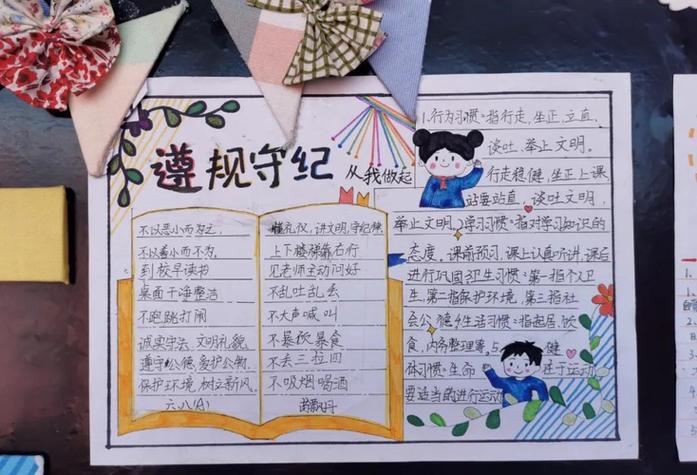 遵规守纪
从我做起
不以恶小而为之,
不以善小而不为。
到校早读书
桌面干净整洁
不跑跳打闹
诚实守法、文明礼貌
遵守公德,爱护公物.
保护环境,树立新风.
六、八(A)
礼仪,讲文明,守纪律
上下楼梯靠右行
见老师主动问好
不乱吐乱丢
不大声喊叫
不暴饮暴食
不丢三拉四
不吸烟喝酒
1.行为习惯:指行走,坐正,立直,
谈吐,举止文明。
行走稳健,坐正上课
站要站直,谈吐文明,
举止文明.2学习习惯:指对学习知识的
态度。课前预习,课上认真听讲,课后
进行巩固3卫生习惯:第一指个人卫
生,第二指保护环境,第三指社
会公德4生活习惯:指起居,饮
食,内务整理等,5健
体习惯:生命在于运动
要适当的进行运动